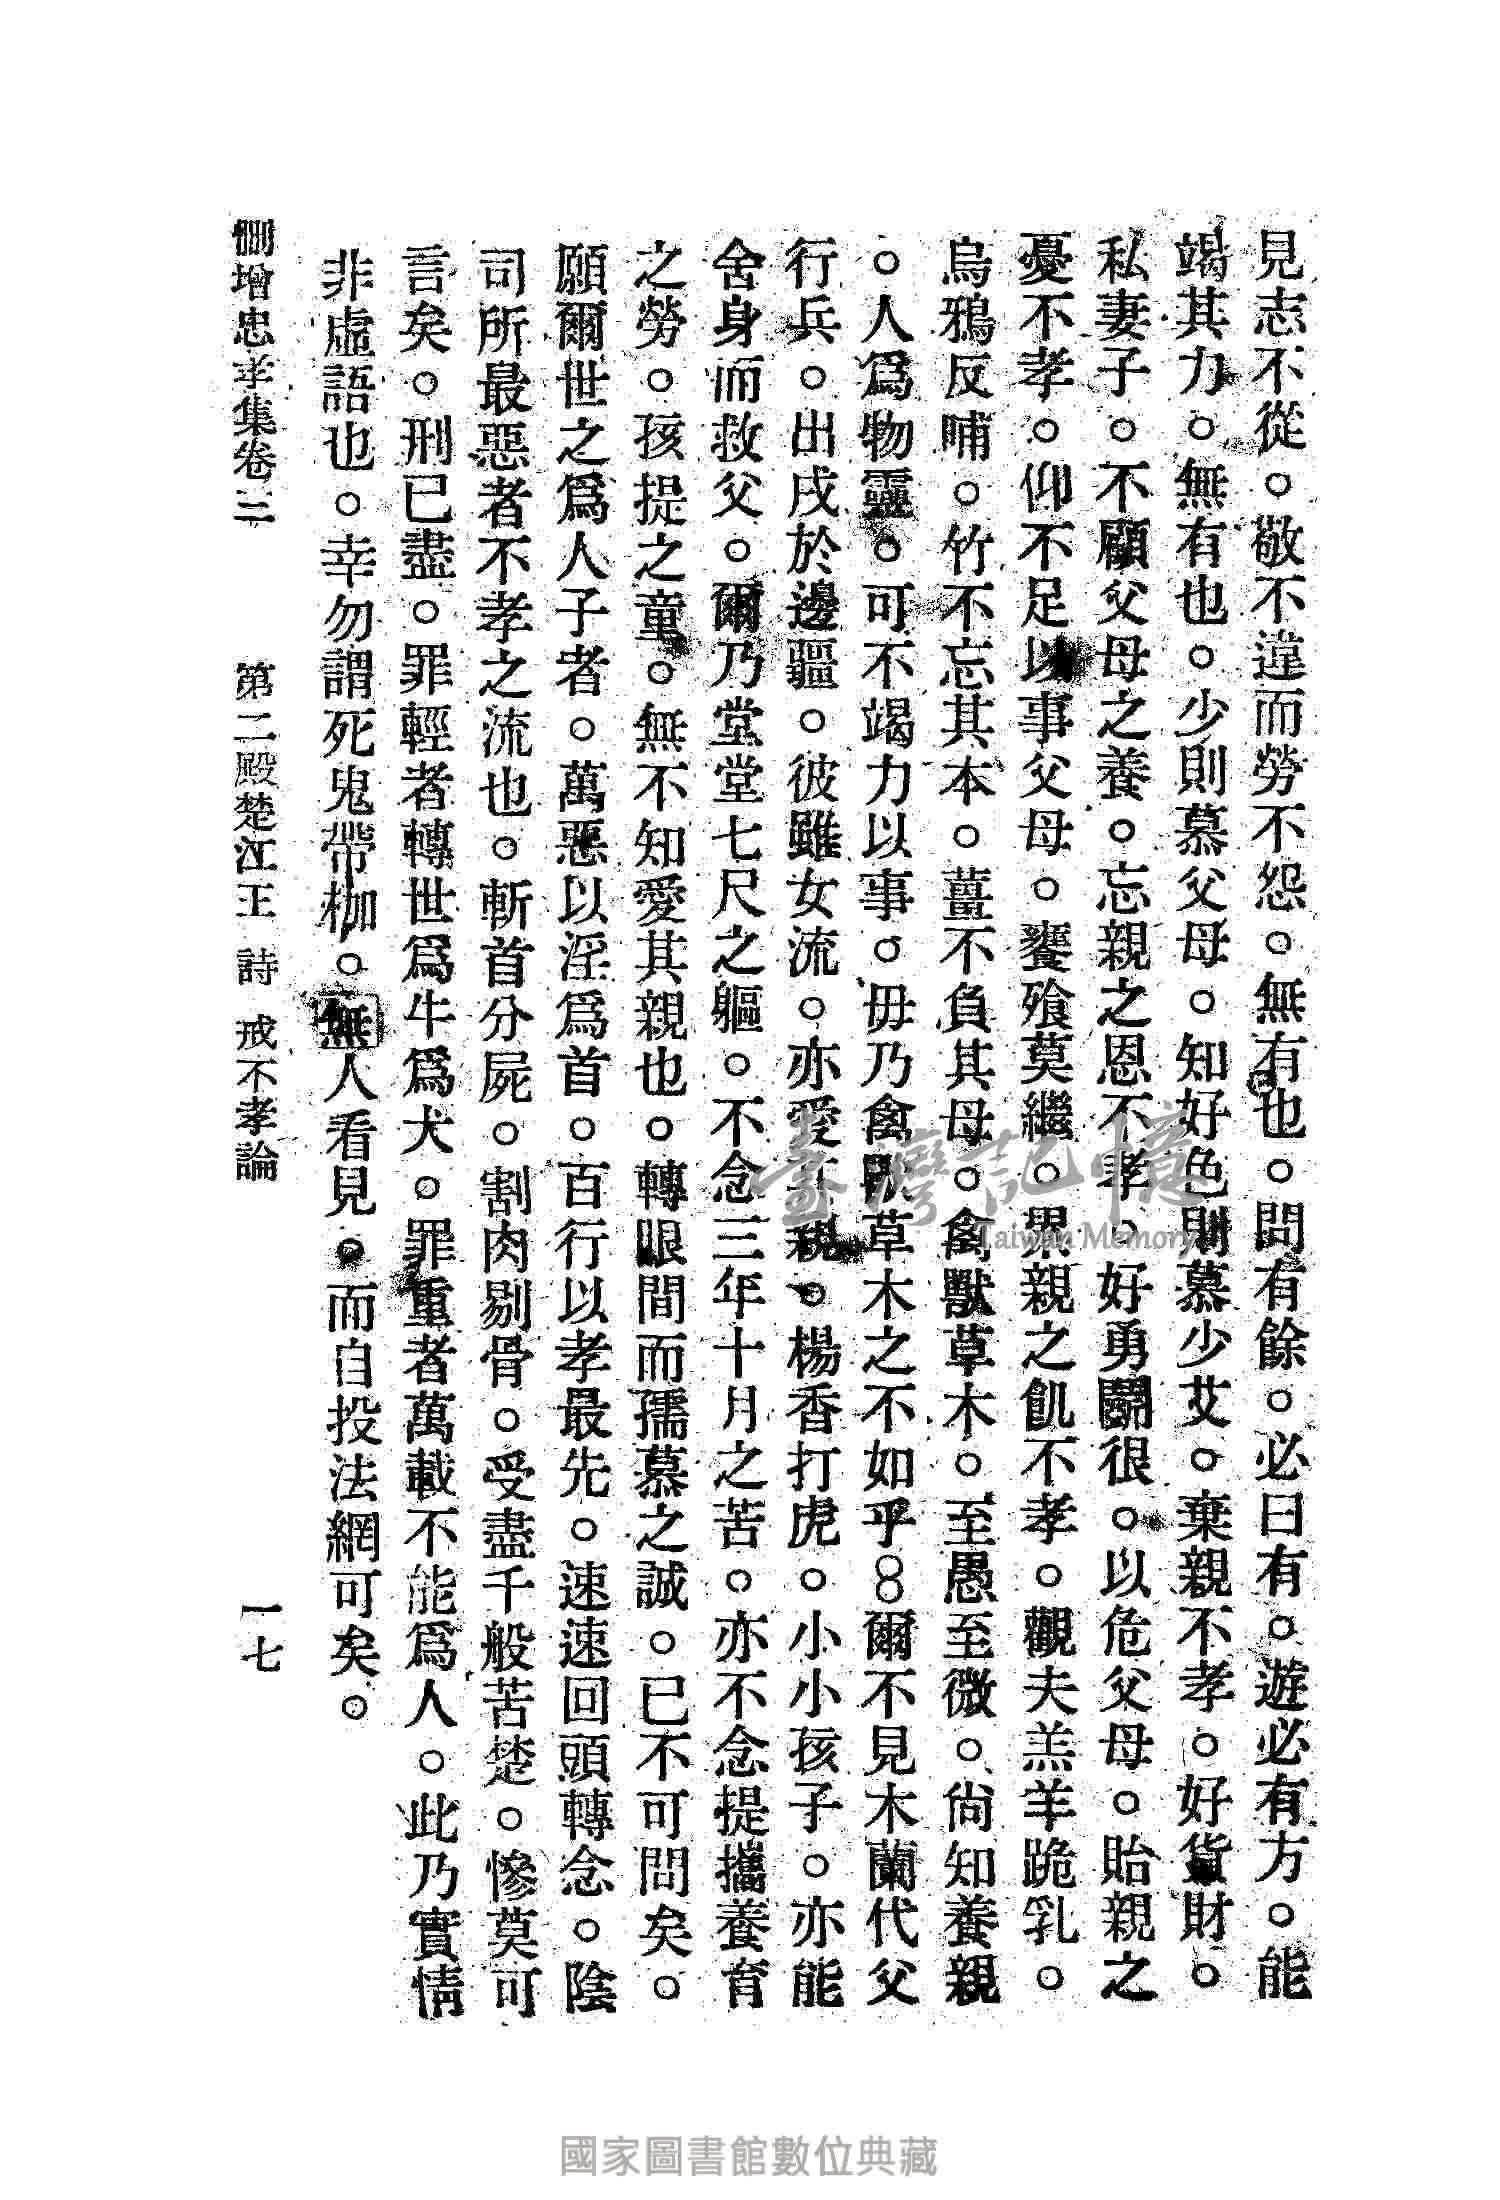 見志不從。敬不違而勞不怨。無有也。問有餘。必曰有。遊必有方。能
竭其力。無有也。少則慕父母。知好色則慕少艾。棄親不孝。好貨財。
私妻子。不顧父母之養。忘親之恩不孝。好勇鬬很。以危父母。貽親之
憂不孝。仰不足以事父母。饔飧莫繼。累親之飢不孝。觀夫羔羊跪乳。
烏鴉反哺。竹不忘其本。薑不負其母。禽獸草木。至愚至微。尙知養親
。人爲物靈。可不竭力以事。毋乃禽獸草木之不如乎。。爾不見木蘭代父
行兵。出戍於邊疆。彼雖女流。亦愛其親。楊香打虎。小小孩子。亦能
舍身而救父。爾乃堂堂七尺之軀。不念三年十月之苦。亦不念提攜養育
之勞。孩提之童。無不知愛其親也。轉眼間而孺慕之誠。已不可問矣。
願爾世之爲人子者。萬惡以淫爲首。百行以孝最先。速速回頭轉念。陰
司所最惡者不孝之流也。斬首分屍。割肉剔骨。受盡千般苦楚。慘莫可
言矣。刑已盡。罪輕者轉世爲牛爲犬。罪重者萬載不能爲人。此乃實情
非虛語也。幸勿謂死鬼帶枷。無人看見。而自投法網可矣。
刪增忠孝集卷三 第二殿楚江王 詩 戒不孝論 一七
臺灣記憶
Taiwan Memory
國家圖書館數位典藏